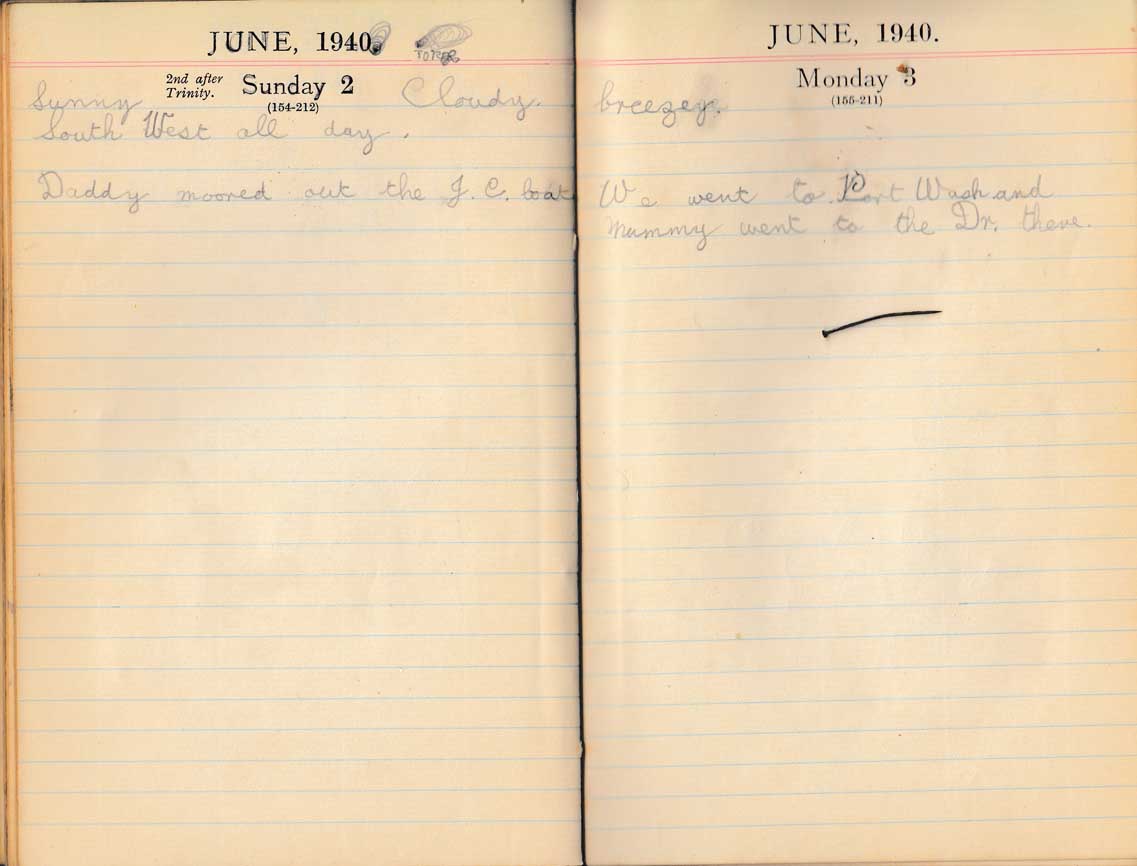 JUNE, 1940.
2nd after
Trinity.
Sunday 2
(154-212)
Sunny Cloudy.
South West all day.
Daddy moored out the J. C. boat
JUNE, 1940.
Monday 3
(155-211)
breezey.
We went to Port Wash and
Mummy went to the Dr. there.